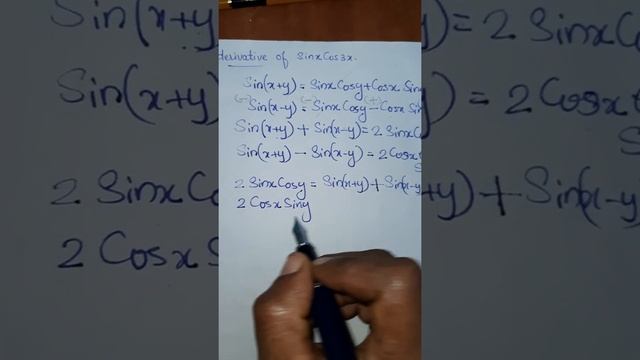 derivative of Sinx Cos3x.
Sin(x+y) = Sinx Cosy + Cosx. Siny
Sin(x-y) = Sinx Cosy - Cosx Sin
Sin(x+y) + Sin(x-y) = 2 Sinx C
Sin(x+y) - Sin(x-y) = 2 Cosx
2 Sinx Cosy = Sin(x+y) + Sin(x-y
2 Cosx Siny